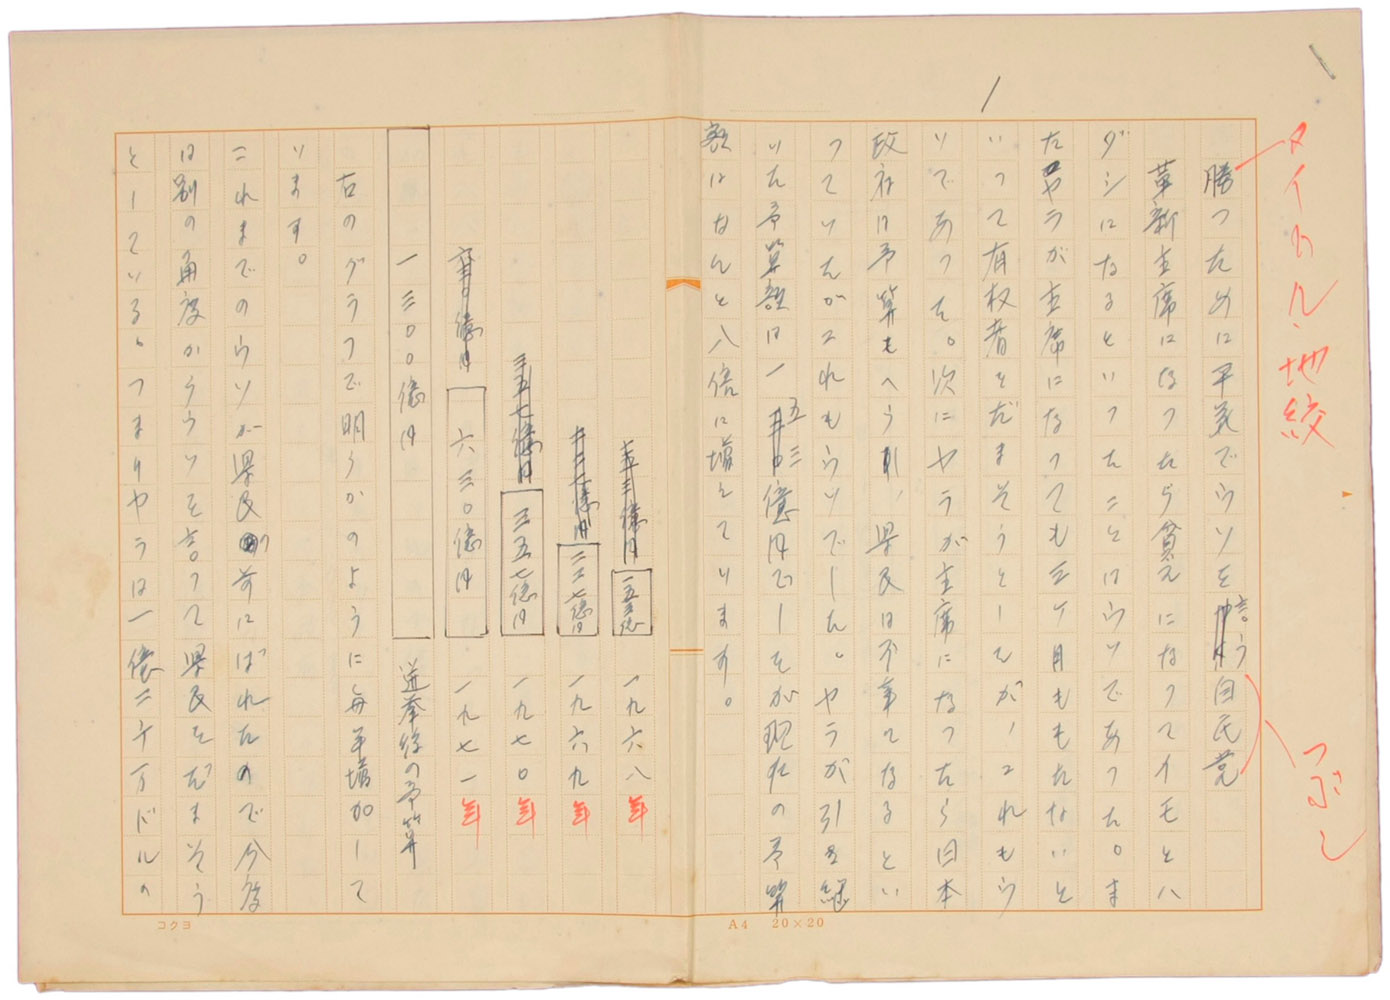 タイトル・地紋
つぶし
1
勝つために平気でウソを言う自民党
革新主席になったら貧乏になってイモとハ
ダシになるといったことはウソであった。ま
たヤラが主席になっても三ケ月ももたないと
いって有权者をだまそうとしたが、これもウ
ソであった。次にヤラが主席になったら日本
政府は予算もへらし、県民は不幸になるとい
っていたがこれもウソでした。ヤラが引き継
いだ予算額は一五三億円でしたが現在の予算
額はなんと八倍に増えています。
一五三億 一九六八年
二二七億円 一九六九年
三五七億円 一九七〇年
六三〇億円 一九七一年
一三〇〇億円 選挙後の予算
右のグラフで明らかのように毎年増加して
います。
これまでのウソが県民の前にばれたので今度
は別の角度からウソを言って県民をだまそう
としている。つまりヤラは一億二千万ドルの
コクヨ
A4 20×20